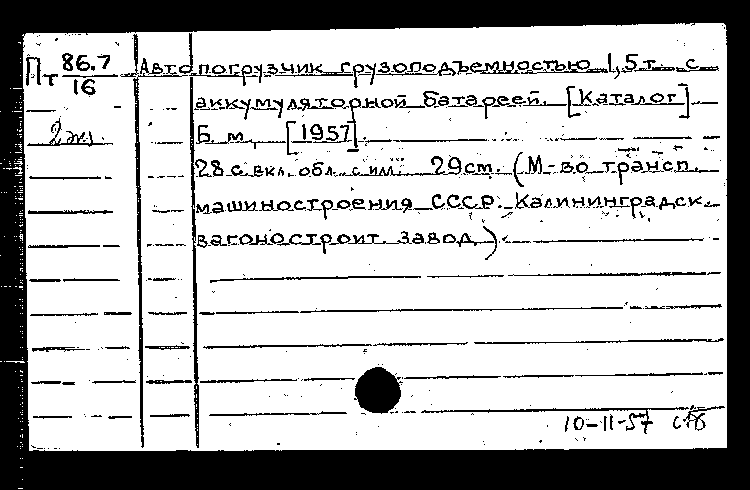 Пт 86.7/16 Автопогрузчик грузоподъемностью 1,5 т. с
аккумуляторной батареей. [Каталог]
2 экз. Б. м., [1957].
28 с. вкл. обл. с ил. 29 см. (М-во трансп.
машиностроения СССР. Калининградск.
вагоностроит. завод)
10-11-57